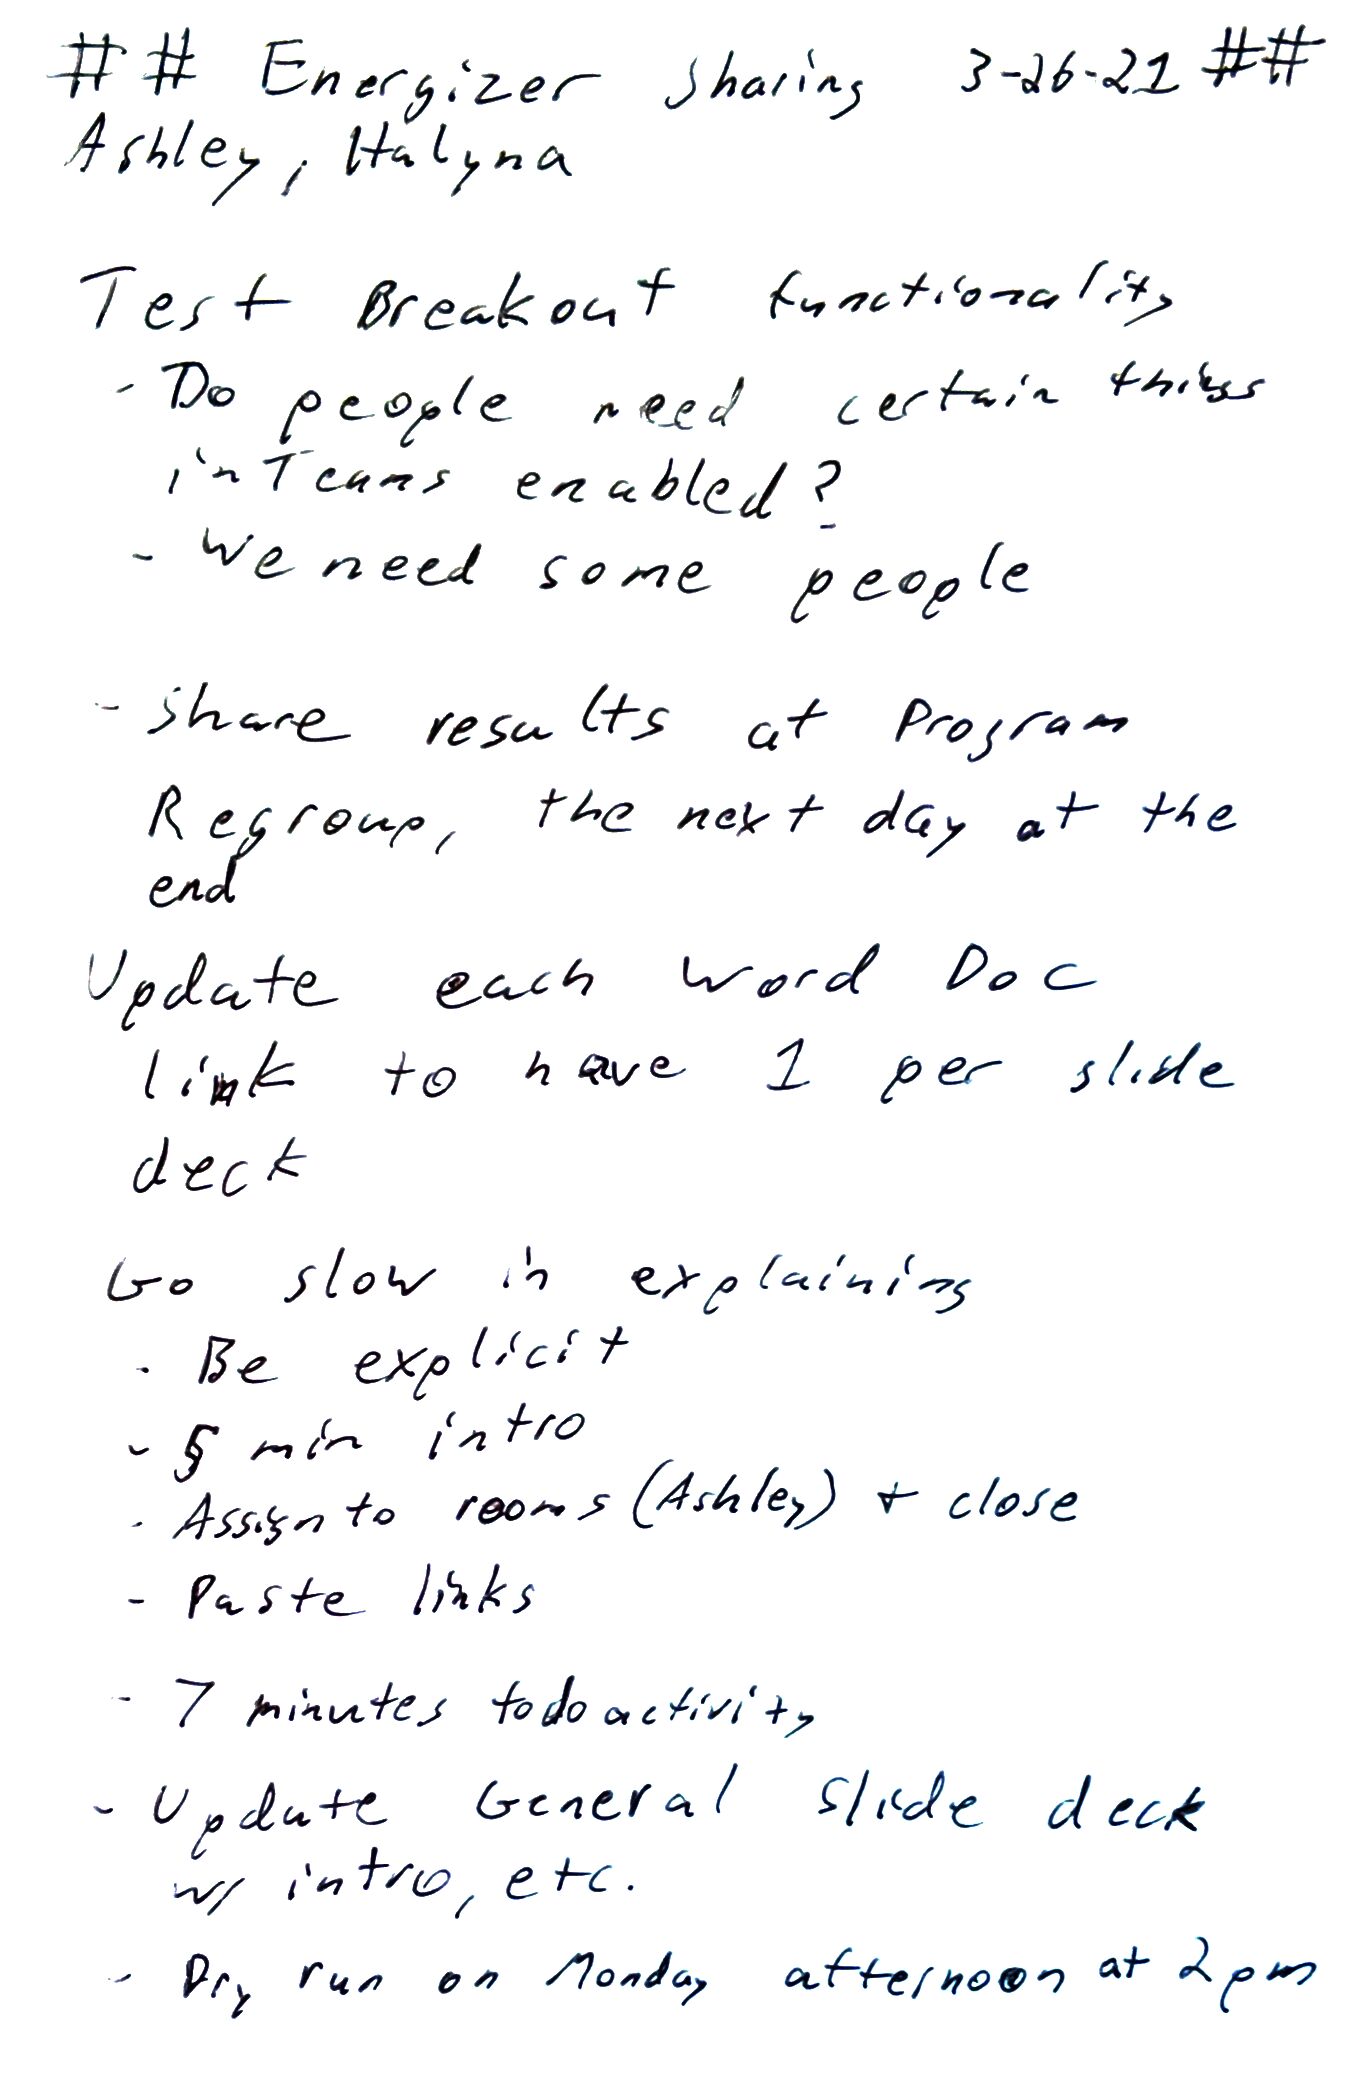 ## Energizer Sharing 3-26-21 ##
Ashley, Halyna
Test Breakout functionality
- Do people need certain things
in Teams enabled?
- We need some people
- Share results at Program
Regroup, the next day at the
end
Update each Word Doc
link to have 1 per slide
deck
Go slow in explaining
- Be explicit
- 5 min intro
- Assign to rooms (Ashley) + close
- Paste links
- 7 minutes to do activity
- Update General Slide deck
w/ intro, etc.
- Dry run on Monday afternoon at 2pm